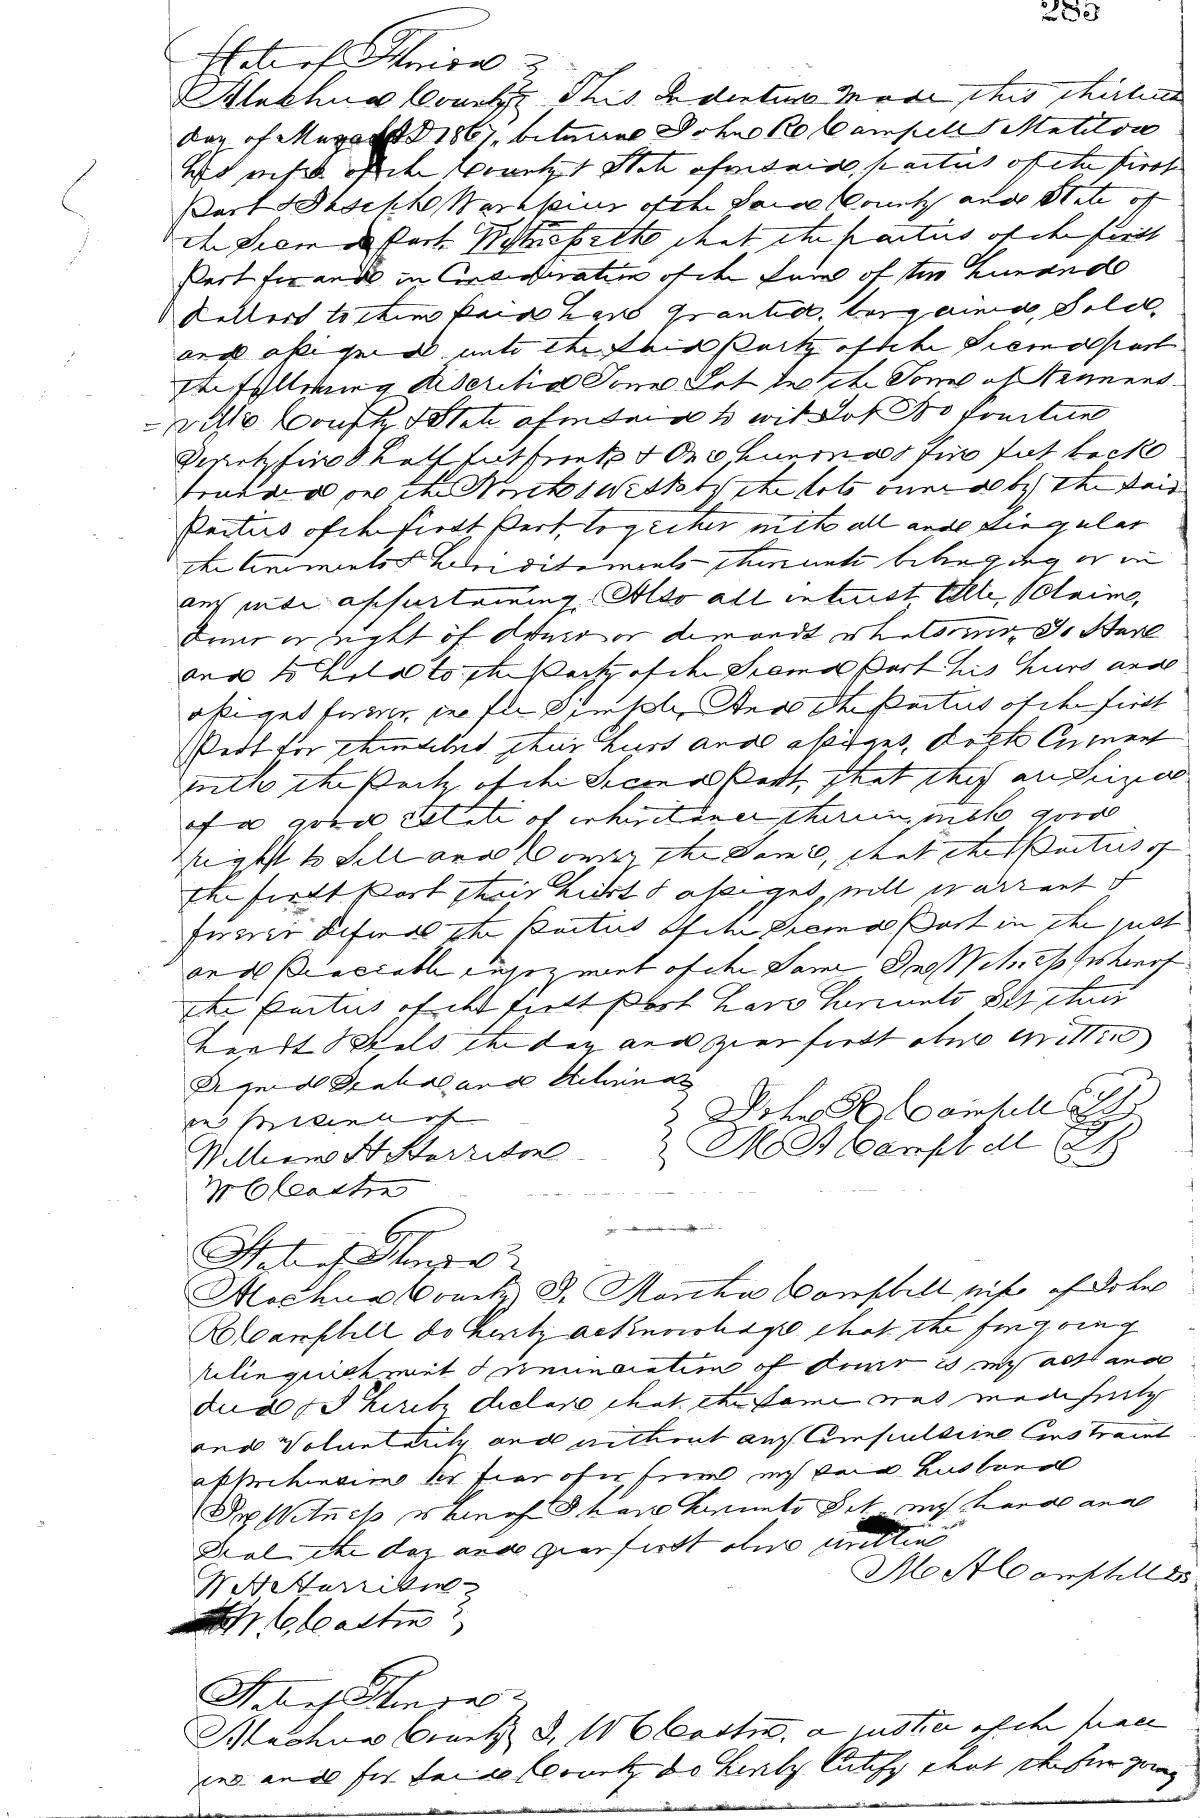 285
State of Florida
Alachua County This Indenture Made this thirteenth
day of AD 1867, between John R Campell & Matilda
his wife of the County & State aforesaid, parties of the first
Part & Joseph Warkpier of the Said County and State of
the Second Part. Witnesseth that the parties of the first
Part for and in Consideration of the Sum of two hundred
dollars to them paid have granted, bargained, Sold,
and assigned unto the Said Party of the Second part
the following discribed Town Lot In the Town of Newnans
=ville County & State aforesaid to wit Lot No fourteen
Seventy five & half feet front & One hundred & five feet back
bounded on the North & West by the lots owned by the Said
Parties of the first Part, together with all and Singular
the tenements & hereditaments thereunto belonging or in
any wise appurtaining. Also all interest, title, Claim,
dower or right of dower or demands whatsoever, To Have
and to hold to the Party of the Second Part his heirs and
assigns forever, in fee Simple, And the Parties of the first
Part for themselves, their heirs and assigns, doth Covenant
with the Party of the Second Part, that they are Seized
of a good Estate of inheritance therein, with good
right to Sell and Convey the Same, that the Parties of
the first Part their heirs & assigns, will warrant &
forever defend the Parties of the Second Part in the just
and Peaceable enjoyment of the Same In Witness whereof
the Parties of the first Part have hereunto Set their
hands & Seals the day and year first above written
Signed Sealed and delivered
in presence of John R Campbell LS
William H Harrison M A Campbell LS
W C Caston
State of Florida
Alachua County I, Martha Campbell wife of John
R Campbell do hereby acknowledge that the forgoing
relinquishment & renunciation of dower is my act and
deed & I hereby declare that the Same was made freely
and Voluntarily and without any Compulsion Constraint
apprehension or fear of or from my said husband
In Witness whereof I have hereunto Set my hand and
Seal the day and year first above written
M A Campbell LS
W H Harrison
W. C. Caston
State of Florida
Alachua County I, W C Caston, a justice of the peace
in and for Said County do hereby Certify that the foregoing